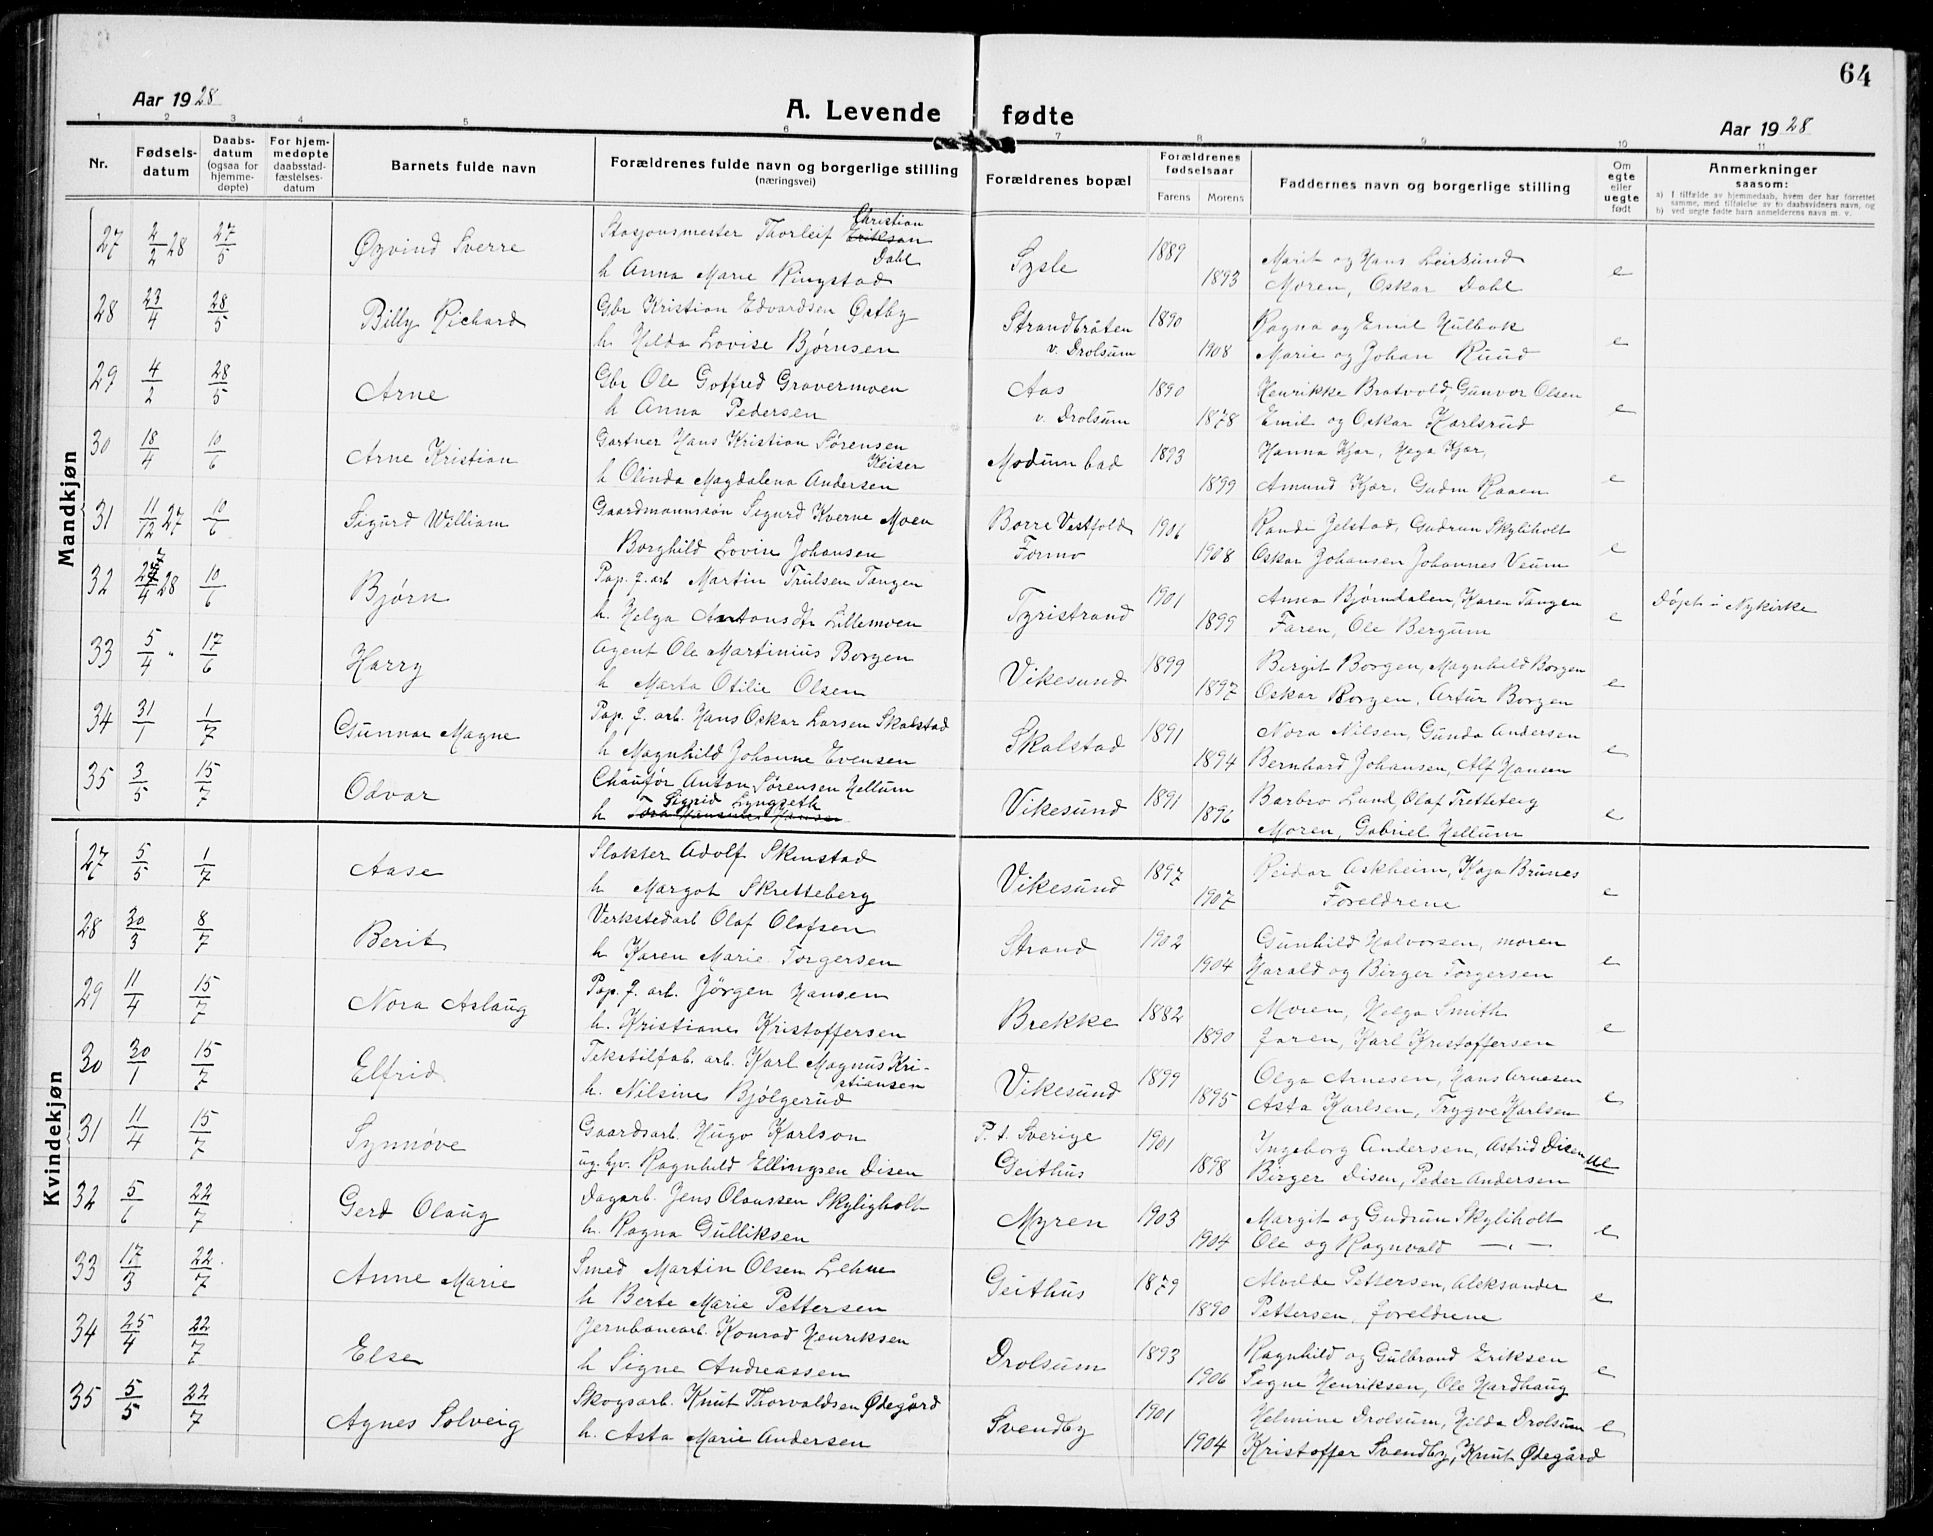 64
Aar 1928
A. Levende fødte
Aar 1928
1 2 3 4 5 6 7 8 9 10 11
Nr.
Fødselsdatum
Daabsdatum (ogsaa for hjemmedøpte)
For hjemmedøpte daabsstadfæstelsesdatum
Barnets fulde navn
Forældrenes fulde navn og borgerlige stilling (næringsvei)
Forældrenes bopæl
Forældrenes fødselsaar
Farens Morens
Faddernes navn og borgerlige stilling
Om egte eller uegte født
Anmerkninger saasom:
a) I tilfælde av hjemmedaab, hvem der har forrettet samme, med tilføielse av to daabsvidners navn, og
b) ved uegte fødte barn anmelderens navn m. v.
Mandkjøn
27 2/2 28 27/5 Øyvind Sverre Stasjonsmester Thorleif Christian Erikson Dahl Sysle 1889 Marit og Hans Leirsund
h Anna Marie Ringstad 1893 Moren, Oskar Dahl e
28 23/4 28/5 Billy Richard Gbr Kristian Edvardsen Østby Strandbråten 1890 Ragna og Emil Hulbak
h. Hilda Lovise Bjørnsen v. Drolsum 1908 Marie og Johan Ruud e
29 4/2 28/5 Arne Gbr Ole Gotfred Gravermoen Aas 1890 Henrikke Bratvold, Gunvor Olsen
h Anna Pedersen v. Drolsum 1878 Emil og Oskar Karlsrud e
30 18/4 10/6 Arne Kristian Gartner Hans Kristian Sørensen Keiser Modum bad 1893 Hanna Kjør, Hega Kjør,
h Olinda Magdalena Andersen 1899 Amund Kjør, Gudm Raaen e
31 11/12 27 10/6 Sigurd William Gaardmannssøn Sigurd Kverne Moen Borre Vestfold 1906 Randi Jelstad, Gudrun Skyliholt
Borghild Lovise Johansen Formo 1908 Oskar Johansen Johannes Veum e
32 27/4 28 10/6 Bjørn Pap. f. arb Martin Trulsen Tangen Tyristrand 1901 Anna Bjørndalen, Karen Tangen Døpt i Nykirke
h. Helga Antonsdtr Lillemoen 1899 Faren, Ole Bergum e
33 5/4 " 17/6 Harry Agent Ole Martinius Borgen Vikesund 1899 Bergit Borgen, Magnhild Borgen
h Marta Otilie Olsen 1897 Oskar Borgen, Artur Borgen e
34 31/1 1/7 Gunnar Magne Pap. f. arb. Hans Oskar Larsen Skalstad Skalstad 1891 Nora Nilsen, Gunda Andersen
h Magnhild Johanne Evensen 1894 Bernhard Johansen, Alf Hansen e
35 3/5 15/7 Odvar Chauför Anton Sørensen Hellum Vikesund 1891 Barbro Lund, Olaf Tretteteig
h Sigrid Lyngseth Tora Hansen 1896 Moren, Gabriel Hellum e
Kvindekjøn
27 5/5 1/7 Aase Slakter Adolf Skinstad Vikesund 1897 Reidar Askheim, Kaja Brunes
h Margot Skretteberg 1907 Foreldrene e
28 30/3 8/7 Berit Verkstedarb Olaf Olafsen Strand 1902 Gunhild Halvorsen, moren
h Karen Marie Torgersen 1904 Harald og Birger Torgersen e
29 11/4 15/7 Nora Aslaug Pap. f. arb. Jörgen Hansen Brekke 1882 Moren, Helga Smith
h. Kristiane Kristoffersen 1890 Faren, Karl Kristoffersen e
30 30/1 15/7 Elfrid Tekstilfab. arb. Karl Magnus Kristiansen Vikesund 1899 Olga Arnesen, Hans Arnesen
h. Nilsine Bjølgerud 1895 Asta Karlsen, Trygve Karlsen e
31 11/4 15/7 Synnøve Gaardsarb. Hugo Karlson P. t. Sverige 1901 Ingeborg Andersen, Astrid Disen
ug. tj. Ragnhild Ellingsen Disen Geithus 1898 Birger Disen, Peder Andersen ue
32 5/6 22/7 Gerd Olaug Dagarb. Jens Olaussen Skyligholt Myren 1903 Margit og Gudrun Skyliholt
h. Ragna Gulliksen 1904 Ole og Ragnvald —"— e
33 17/3 22/7 Anne Marie Smed Martin Olsen Lehne Geithus 1879 Alvilde Pettersen, Aleksander
h Berte Marie Pettersen 1890 Pettersen, foreldrene e
34 25/4 22/7 Else Jernbanearb. Konrad Henriksen Drolsum 1893 Ragnhild og Gulbrand Eriksen
h Signe Andreassen 1906 Signe Henriksen, Ole Hardhaug e
35 5/5 22/7 Agnes Solveig Skogsarb. Knut Thorvaldsen Ødegård Svendby 1901 Helmine Drolsum, Hilda Drolsum e
h. Asta Marie Andersen 1904 Kristoffer Svendby, Knut Ødegård